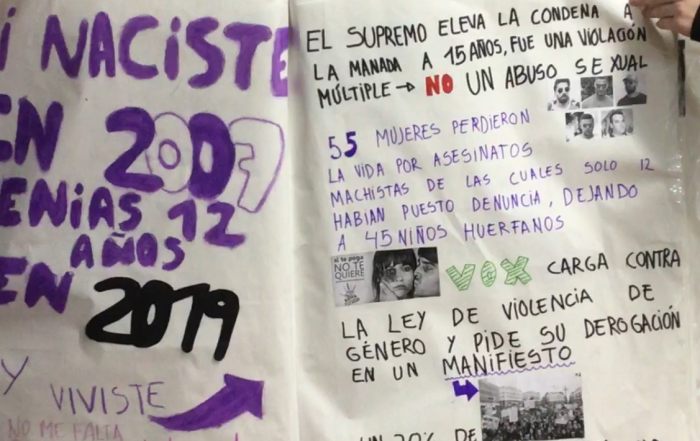 NACISTE
EN 2007
TENIAS 12
AÑOS
EN 2019
Y VIVISTE
NO ME FALTA
EL SUPREMO ELEVA LA CONDENA A
LA MANADA A 15 AÑOS, FUE UNA VIOLACIÓN
MÚLTIPLE → NO UN ABUSO SEXUAL
55 MUJERES PERDIERON
LA VIDA POR ASESINATOS
MACHISTAS DE LAS CUALES SOLO 12
HABIAN PUESTO DENUNCIA, DEJANDO
A 45 NIÑOS HUERFANOS
si te pega
NO TE
QUIERE
VOX CARGA CONTRA
LA LEY DE VIOLENCIA DE
GÉNERO Y PIDE SU DEROGACIÓN
EN UN MANIFIESTO
UN 20% DE